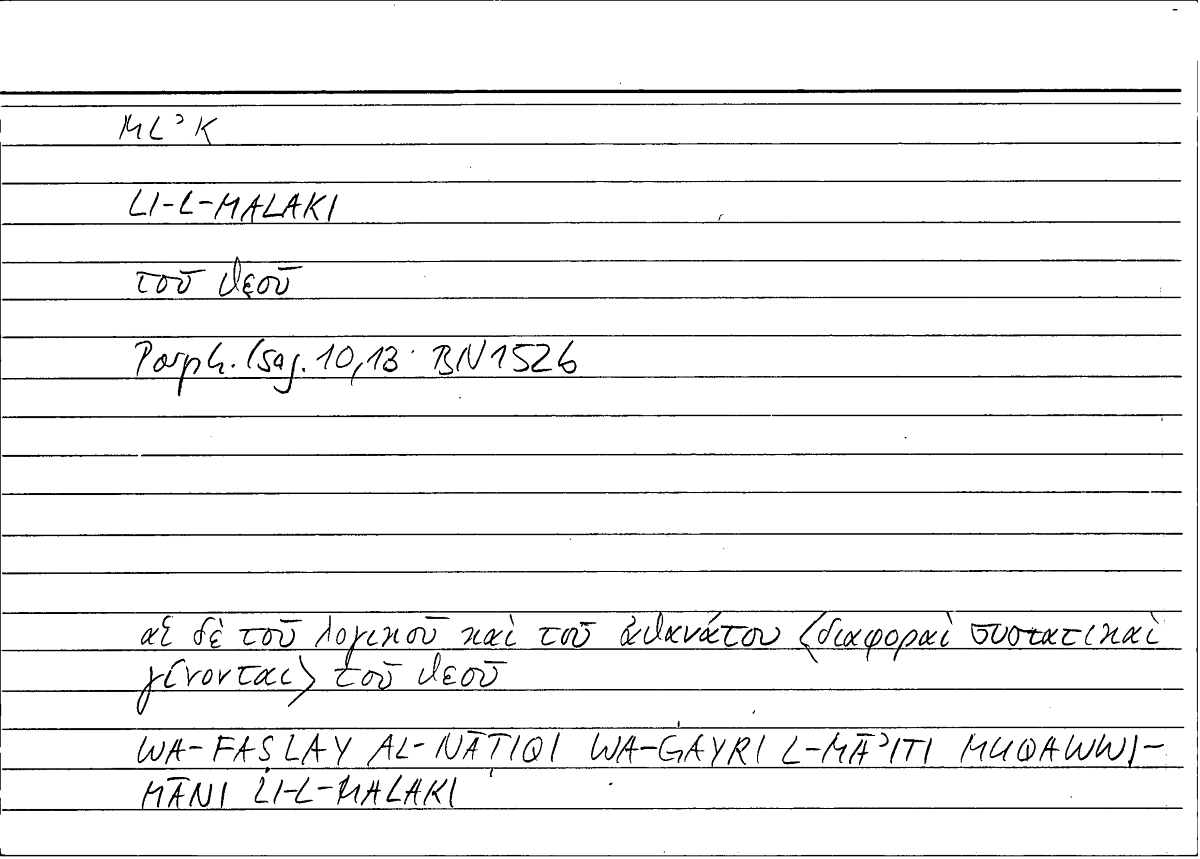 MLʾK
LI-L-MALAKI
τοῦ θεοῦ
Porph. Isag. 10,13 BN1526
αἱ δὲ τοῦ λογικοῦ καὶ τοῦ ἀθανάτου ⟨διαφοραὶ συστατικαὶ
γίνονται⟩ τοῦ θεοῦ
WA-FAṢLAY AL-NĀṬIQI WA-ĠAYRI L-MĀʾITI MUQAWWI-
MĀNI LI-L-MALAKI